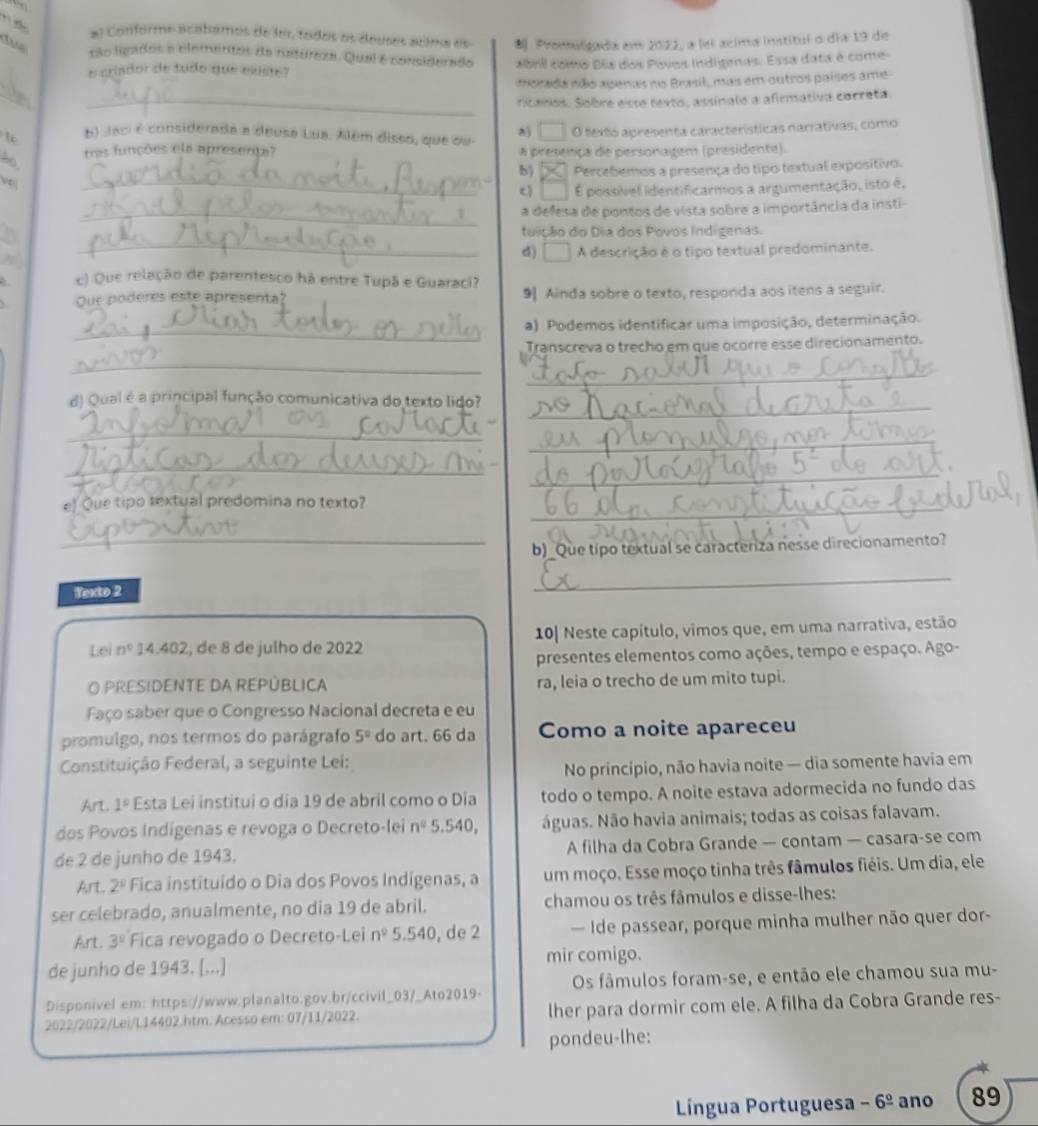 a) Conforme acabamos de ler, todos os deuses acima es-
tão ligados a elementos da natureza. Qual é considerado
o criador de tudo que existe?
Tupã
b) Jaci é considerada a deusa Lua. Além disso, que ou-
tras funções ela apresenta?
Guardiã da noite, Respon-
sável pelos amantes e
pela reprodução.
c) Que relação de parentesco há entre Tupã e Guaraci?
Que poderes este apresenta?
Pai, criar todos os seres
vivos
d) Qual é a principal função comunicativa do texto lido?
Informar as caracte-
rísticas dos deuses mi-
tológicos
e) Que tipo textual predomina no texto?
Expositivo
Texto 2
Lei nº 14.402, de 8 de julho de 2022
O PRESIDENTE DA REPÚBLICA
Faço saber que o Congresso Nacional decreta e eu
promulgo, nos termos do parágrafo 5º do art. 66 da
Constituição Federal, a seguinte Lei:
Art. 1º Esta Lei institui o dia 19 de abril como o Dia
dos Povos Indígenas e revoga o Decreto-lei nº 5.540,
de 2 de junho de 1943.
Art. 2º Fica instituído o Dia dos Povos Indígenas, a
ser celebrado, anualmente, no dia 19 de abril.
Art. 3º Fica revogado o Decreto-Lei nº 5.540, de 2
de junho de 1943. [...]
Disponível em: https://www.planalto.gov.br/ccivil_03/_Ato2019-
2022/2022/Lei/L14402.htm. Acesso em: 07/11/2022.
8| Promulgada em 2022, a lei acima institui o dia 19 de
abril como Dia dos Povos Indígenas. Essa data é come-
morada não apenas no Brasil, mas em outros países ame-
ricanos. Sobre esse texto, assinale a afirmativa correta.
a) O texto apresenta características narrativas, como
a presença de personagem (presidente).
b) X Percebemos a presença do tipo textual expositivo.
c) É possível identificarmos a argumentação, isto é,
a defesa de pontos de vista sobre a importância da insti-
tuição do Dia dos Povos Indígenas.
d) A descrição é o tipo textual predominante.
9| Ainda sobre o texto, responda aos itens a seguir.
a) Podemos identificar uma imposição, determinação.
Transcreva o trecho em que ocorre esse direcionamento.
"faço saber que o congres
so nacional decreta e
eu promulgo, nos termos
do parágrafo 5º do art.
66 da constituição federal,
a seguinte Lei:"
b) Que tipo textual se caracteriza nesse direcionamento?
Ex
10| Neste capítulo, vimos que, em uma narrativa, estão
presentes elementos como ações, tempo e espaço. Ago-
ra, leia o trecho de um mito tupi.
Como a noite apareceu
No princípio, não havia noite — dia somente havia em
todo o tempo. A noite estava adormecida no fundo das
águas. Não havia animais; todas as coisas falavam.
A filha da Cobra Grande — contam — casara-se com
um moço. Esse moço tinha três fâmulos fiéis. Um dia, ele
chamou os três fâmulos e disse-lhes:
— Ide passear, porque minha mulher não quer dor-
mir comigo.
Os fâmulos foram-se, e então ele chamou sua mu-
lher para dormir com ele. A filha da Cobra Grande res-
pondeu-lhe:
Língua Portuguesa - 6º ano 89